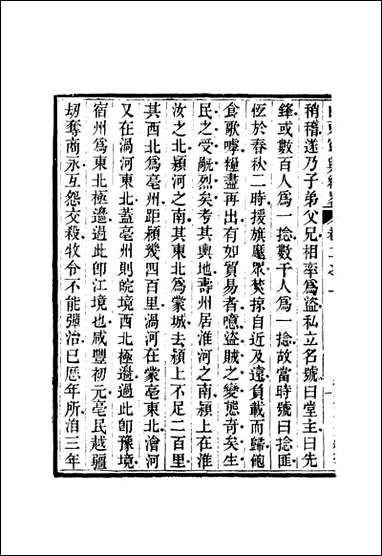 稍稽遂乃子弟父兄相率為盜私立名號曰堂主曰先
鋒或數百人為一捻數千人為一捻故當時號曰捻匪
恆於春秋二時援旗麾眾焚掠自近及遠負載而歸飽
食歌嘑糧盡再出有如貿易者噫盜賊之變態奇矣生
民之受厭烈矣考其輿地壽州居淮河之南潁上在淮
汝之北潁河之南其東北為蒙城去潁上不足二百里
其西北為亳州距潁幾四百里渦河在蒙亳東北澮河
又在渦河東北蓋亳州則皖境西北極邊過此卽豫境
宿州為東北極邊過此卽江境也咸豐初元亳民越疆
劫奪商永互怨交殺牧令不能彈治已厯年所洎三年